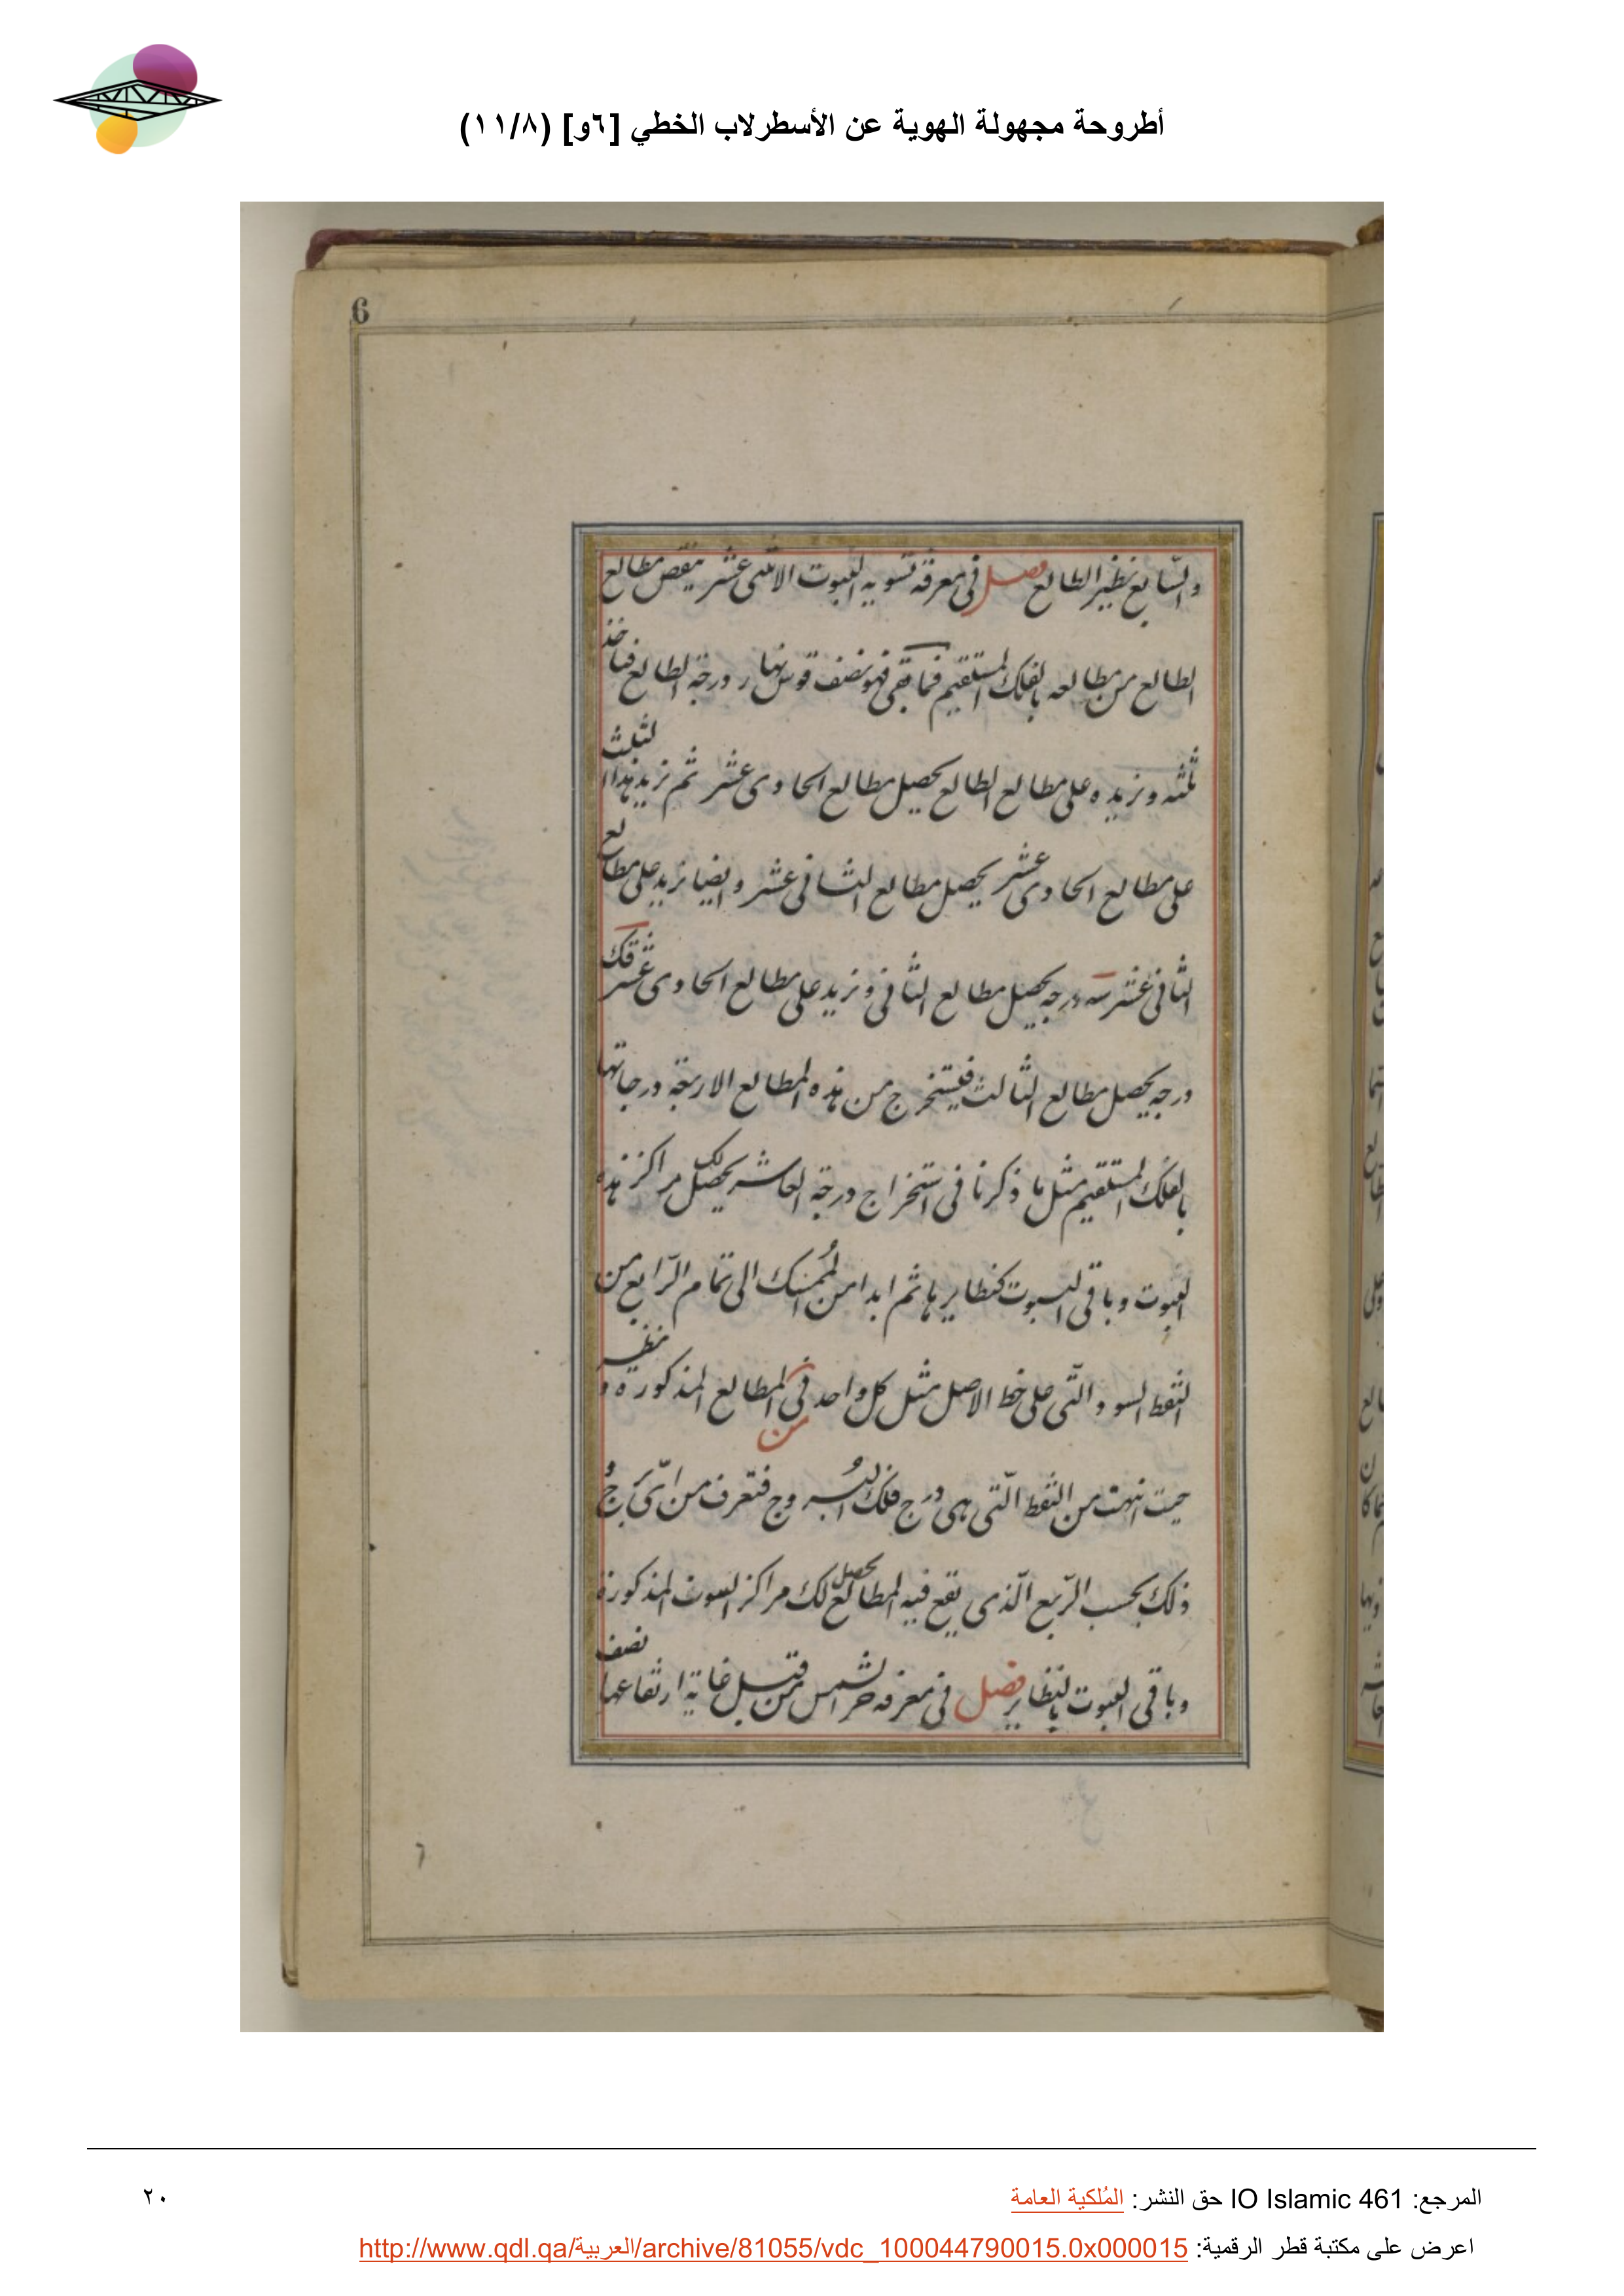 أطروحة مجهولة الهوية عن الأسطرلاب الخطي [٦و] (١١/٨)
6
والسّابع نظير الطالع فصل فى معرفة تسوية البيوت الاثنى عشر ينقص مطالع
الطالع من مطالعه بالفلك المستقيم فما بقى فهو نصف قوس نهار درجة الطالع فناخذ
ثلثه ونزيده على مطالع الطالع يحصل مطالع الحادى عشر ثم نزيد هذا الثلث
على مطالع الحادى عشر يحصل مطالع الثانى عشر وايضا نزيد على مطالع
الثانى عشر سه درجه يحصل مطالع الثانى ونزيد على مطالع الحادى عشر قك
درجه يحصل مطالع الثالث فيستخرج من هذه المطالع الاربعة درجاتها
بالفلك المستقيم مثل ما ذكرنا فى استخراج درجة العاشر يحصل لك مراكز هذه
البيوت وباقى البيوت كنظايرها ثم ابدا من الممسك الى تمام الرّابع من
النقط السود والتّى على خط الاصل مثل كل واحد فى من المطالع المذكوره ونظير
حيث انتهت من النقط الّتى هى درج فلك البروج فتعرف من اىّ برج
ذلك بحسب الرّبع الّذى يقع فيه المطالع يحصل لك مراكز البيوت المذكورة
وباقى البيوت بالنظاير فصل فى معرفة جز الشمس من قبل غاية ارتفاعها نصف
٦
المرجع: IO Islamic 461 حق النشر: المُلكية العامة
٢٠
اعرض على مكتبة قطر الرقمية: http://www.qdl.qa/العربية/archive/81055/vdc_100044790015.0x000015